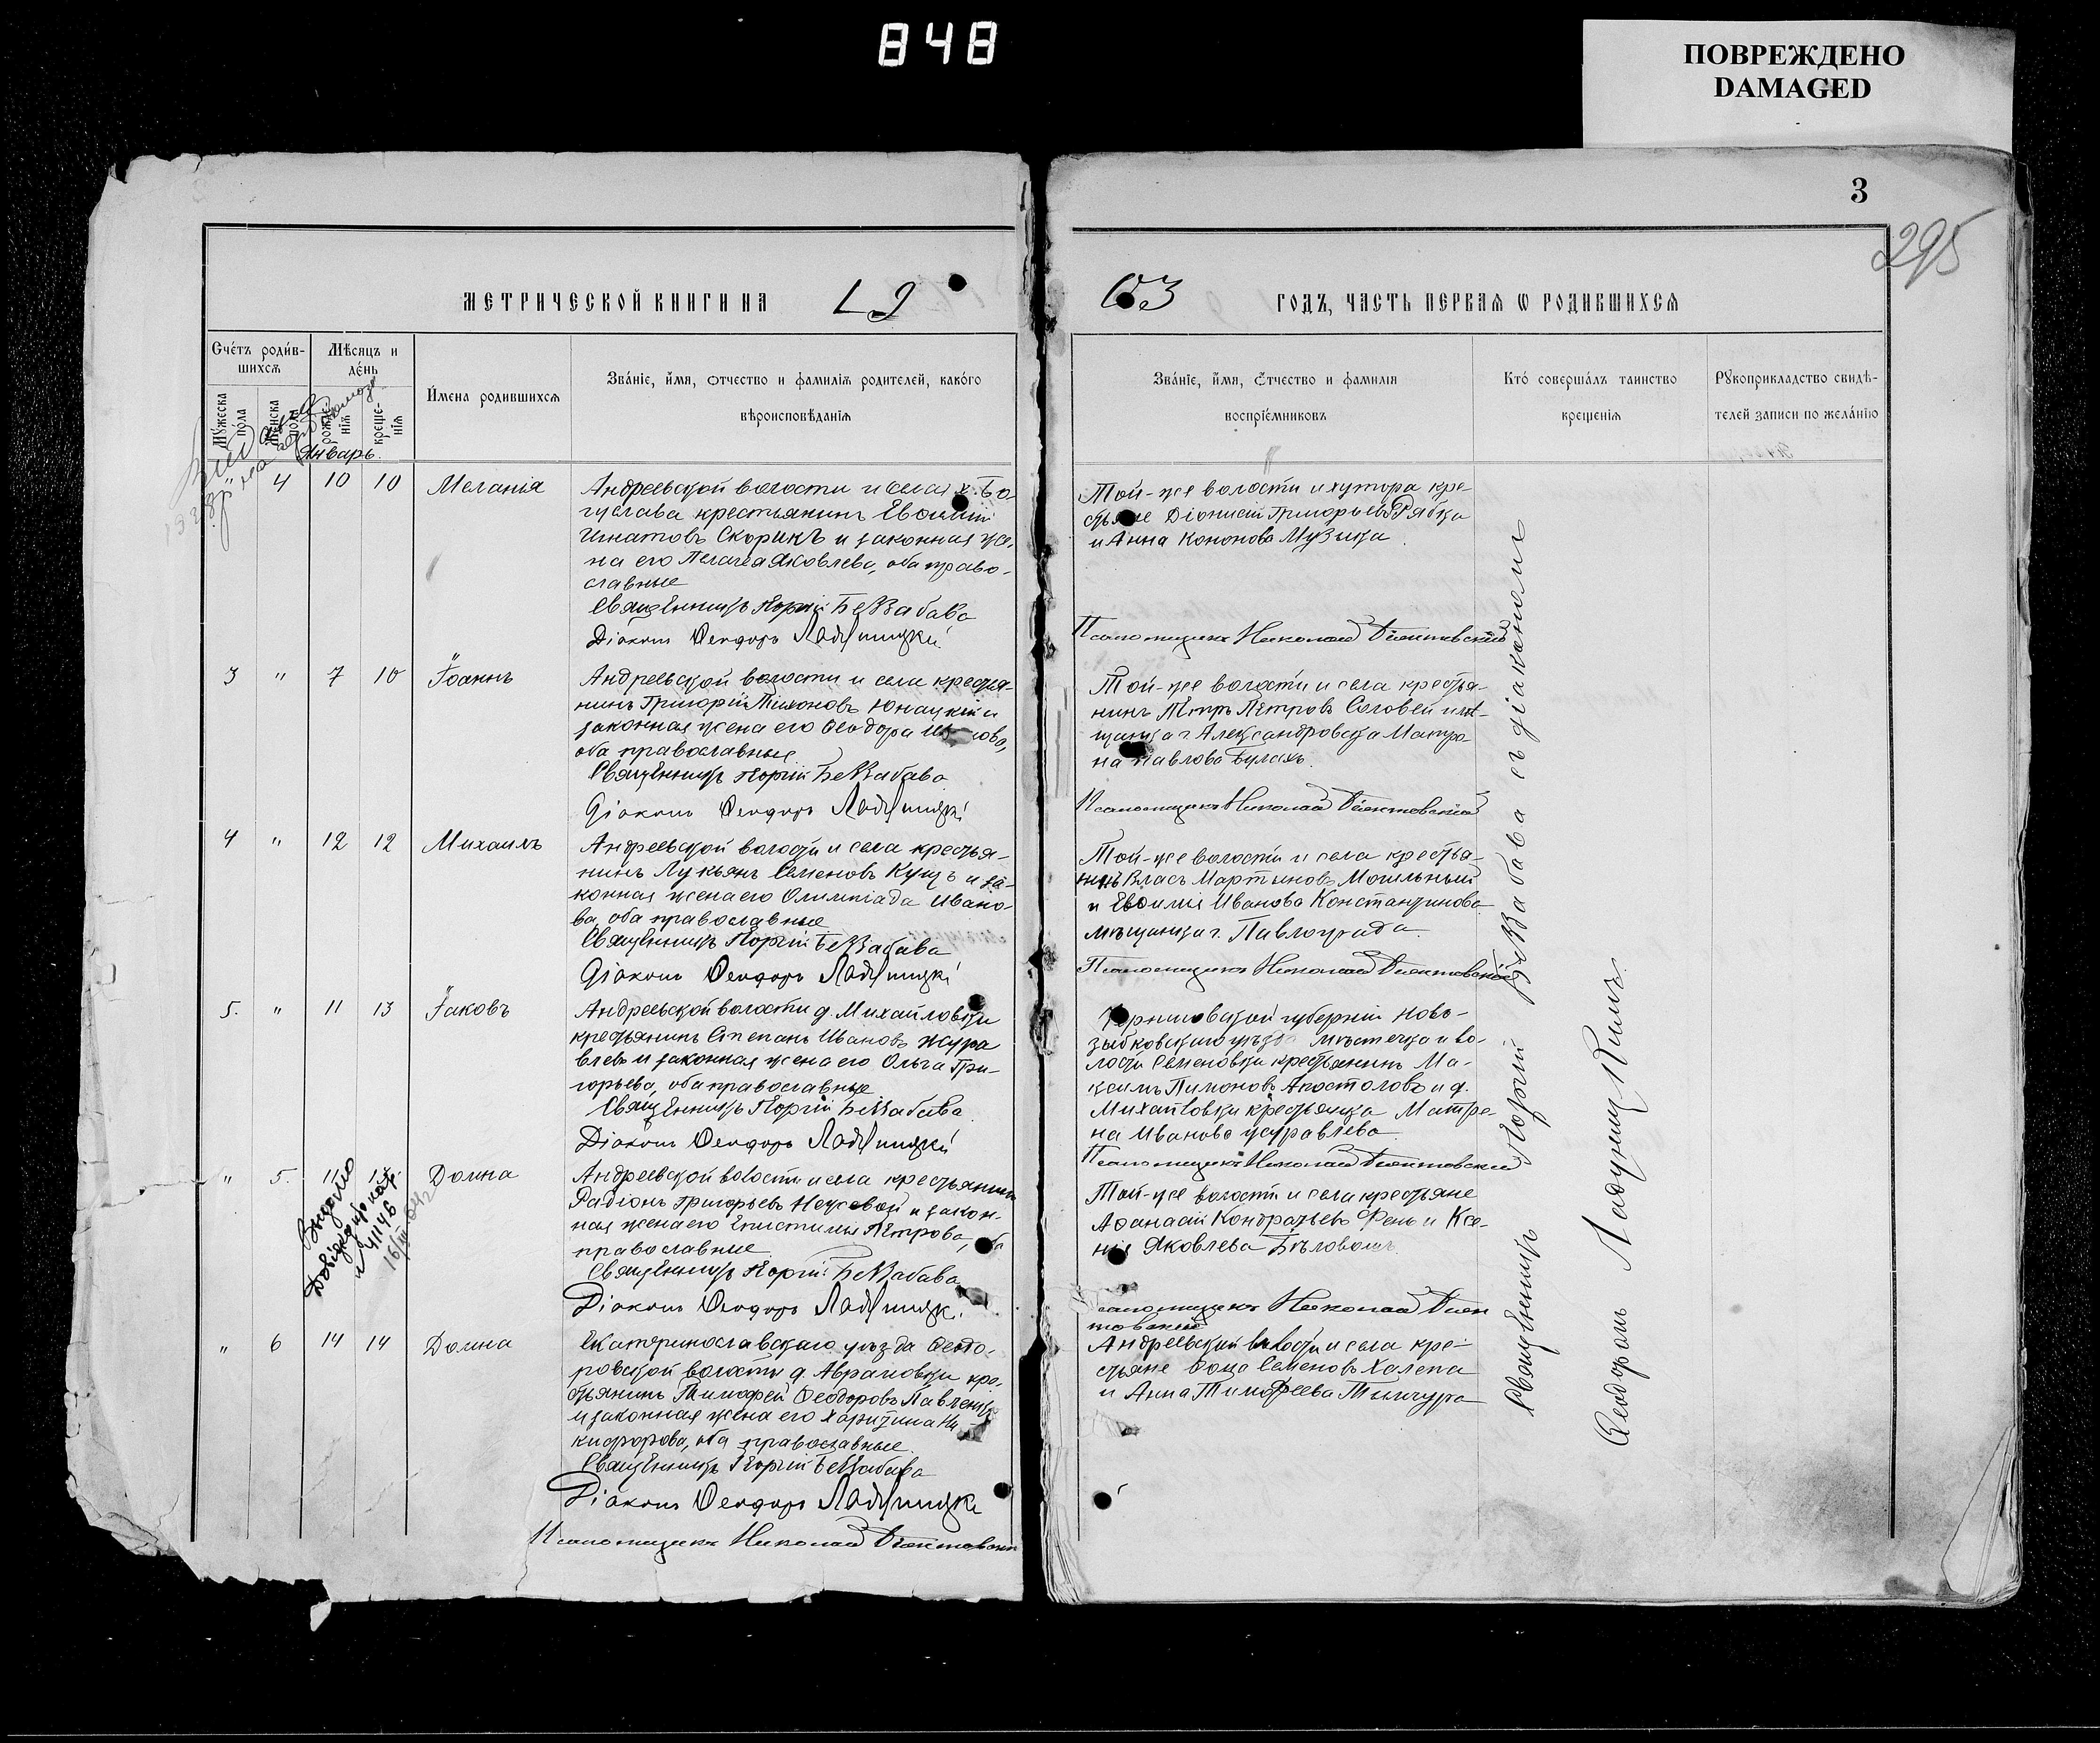 848
ПОВРЕЖДЕНО
DAMAGED
3
295
МЕТРИЧЕСКОЙ КНИГИ НА 19
03 ГОДЪ, ЧАСТЬ ПЕРВАЯ Ѡ РОДИВШИХСЯ
Счетъ родив-
шихся
Мѣсяцъ и
день
Мужеска
пола
Женска
пола
рожде-
нія
креще-
нія
Имена родившихся
Званіе, имя, отчество и фамилія родителей, какого
вѣроисповѣданія
Званіе, имя, отчество и фамилія
воспріемниковъ
Кто совершалъ таинство
крещенія
Рукоприкладство свидѣ-
телей записи по желанію
Январь.
" 4 10 10 Меланія
Андреевской волости и села х. Бо-
гуслава крестьянинъ Евѳимій
Игнатовъ Скорикъ и законная же-
на его Пелагея Яковлева, оба право-
славные
Священникъ Георгій Беззабава
Діаконъ Ѳеодоръ
Той-же волости и хутора кре-
стьяне Діонисій Григорьевъ Рябка
и Анна Кононова Музика
Псаломщикъ Николай
3 " 7 10 Іоаннъ
Андреевской волости и села крестья-
нинъ Григорій Тихоновъ Юнацкій и
законная жена его Ѳеодора
оба православные.
Священникъ Георгій Беззабава
Діаконъ Ѳеодоръ
Той-же волости и села крестья-
нинъ Петръ Петровъ Соловей и мѣ-
щанка г. Александровска Матро-
на Павлова Булахъ.
Псаломщикъ Николай
4 " 12 12 Михаилъ
Андреевской волости и села крестья-
нинъ Лукьянъ Семеновъ Куцъ и за-
конная жена его Олимпіада Ивано-
ва, оба православные
Священникъ Георгій Беззабава
Діаконъ Ѳеодоръ
Той-же волости и села крестья-
нинъ Власъ Мартыновъ Могильный
и Евѳимія Иванова Константинова
мѣщанка г. Павлограда.
Псаломщикъ Николай
5. " 11 13 Іаковъ
Андреевской волости д. Михайловки
крестьянинъ Степанъ Ивановъ Жура
влевъ и законная жена его Ольга Гри-
горьева, оба православные
Священникъ Георгій Беззабава
Діаконъ Ѳеодоръ
Черниговской губерніи Ново-
зыбковскаго уѣзда мѣстечка и во-
лости Семеновки крестьянинъ Ма-
ксимъ Пимоновъ Апостоловъ и д.
Михайловки крестьянка Матре-
на Иванова Журавлева
Псаломщикъ Николай
" 5. 11 13 Домна
Андреевской волости и села крестьянинъ
Радіонъ Григорьевъ и закон-
ная жена его Епистимія Петрова, оба
православные
Священникъ Георгій Беззабава
Діаконъ Ѳеодоръ
Той-же волости и села крестьяне
Аѳанасій Кондратьевъ Фень и Ксе-
нія Яковлева
Псаломщикъ Николай
Видано
Довідку
4114б
" 6 14 14 Домна
Екатеринославскаго уѣзда Ѳеодо-
ровской волости д. Аврамовки кре-
стьянинъ Тимофей Ѳеодоровъ Павленко
и законная жена его Харитина Ни-
кифорова, оба православные.
Священникъ Георгій Беззабава
Діаконъ Ѳеодоръ
Псаломщикъ Николай
Андреевской волости и села кре-
стьяне Ѳома Семеновъ Халепа
и Анна Тимофеева
Священникъ Георгій Беззабава съ діакономъ
Ѳеодоромъ